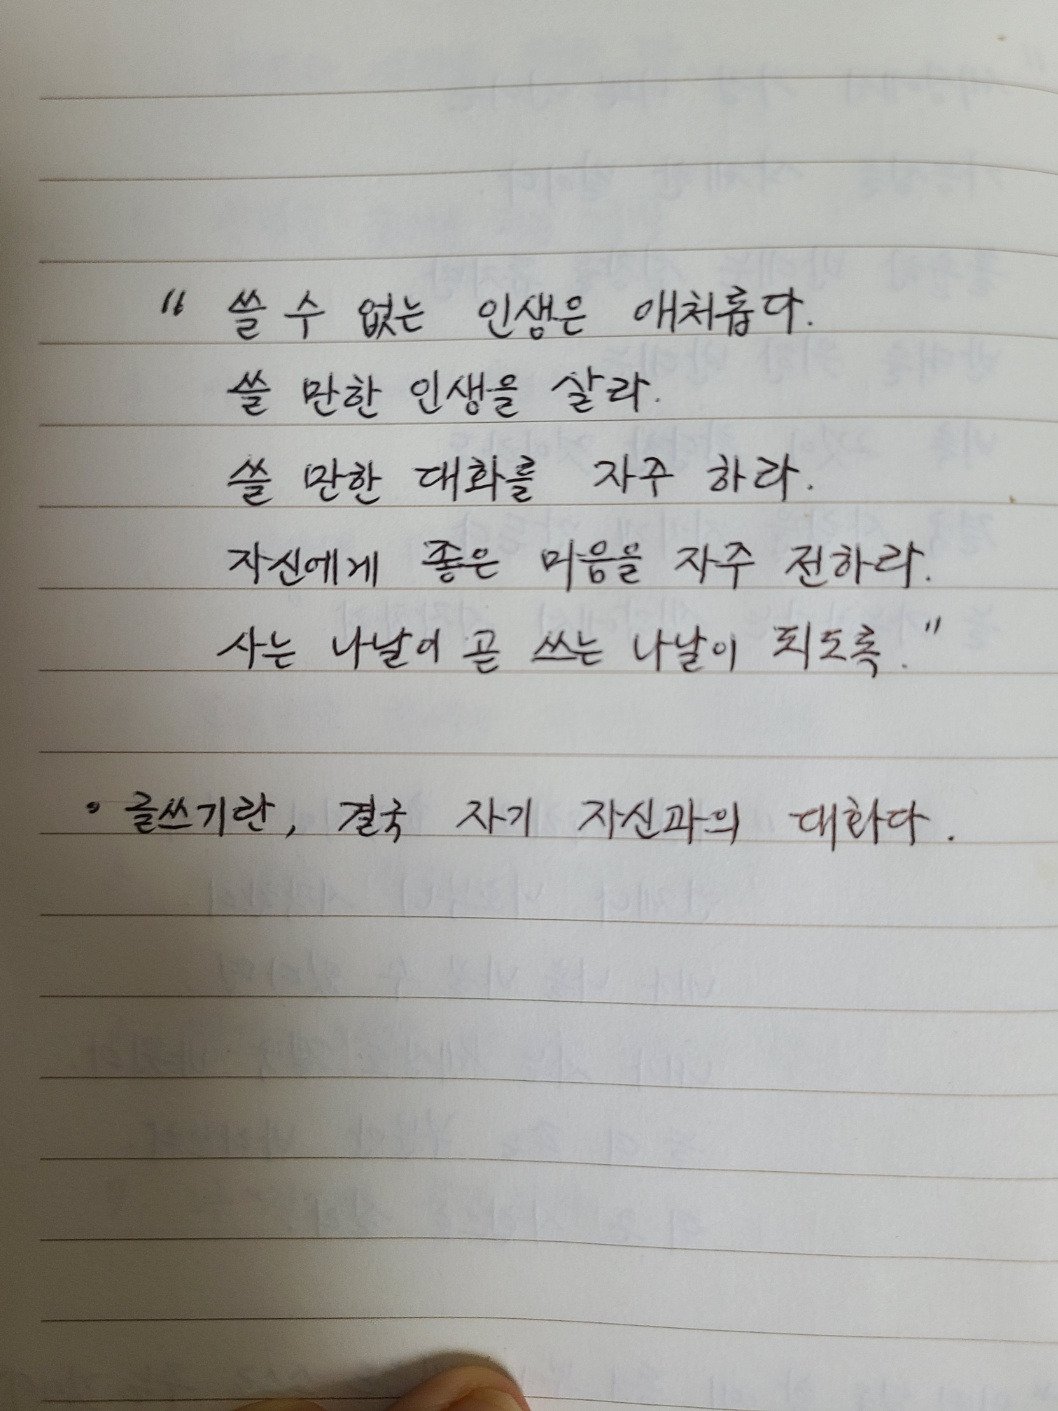 " 쓸 수 없는 인생은 애처롭다.
쓸 만한 인생을 살라.
쓸 만한 대화를 자주 하라.
자신에게 좋은 마음을 자주 전하라.
사는 나날이 곧 쓰는 나날이 되도록."
• 글쓰기란, 결국 자기 자신과의 대화다.